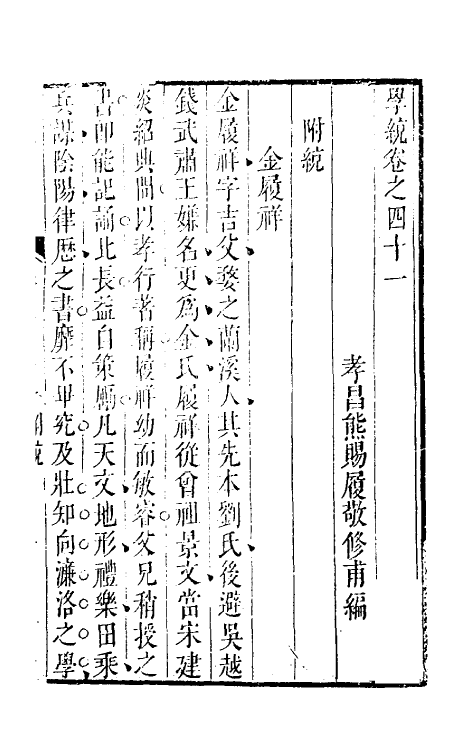 學統卷之四十一
孝昌熊賜履敬修甫編
附統
金履祥
金履祥字吉父婺之蘭溪人其先本劉氏後避吳越
錢武肅王嫌名更爲金氏履祥從曾祖景文當宋建
炎紹興間以孝行著稱履祥幼而敏睿父兄稍授之
書即能記誦比長益自策勵凡天文地形禮樂田乘
兵謀陰陽律歷之書靡不畢究及壯知向濂洛之學